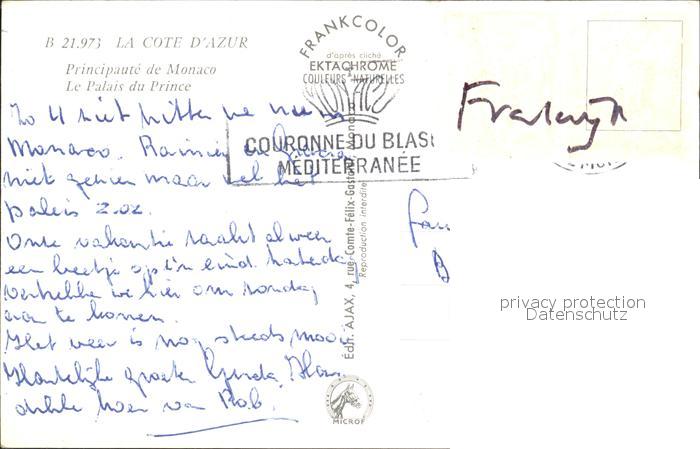 B 21.973 LA COTE D'AZUR
Principauté de Monaco
Le Palais du Prince
FRANKCOLOR
d'après cliché
EKTACHROME
COULEURS NATURELLES
COURONNE DU BLAS
MÉDITERRANÉE
Zo U ziet zitten we nu in
Monaco. Rainier en
niet gezien maar wel het
paleis z.oz.
Onze vakantie raakt alweer
een beetje op z'n eind. Zaterdag
vertrekken we hier om zondag
aan te komen.
Het weer is nog steeds mooi
Hartelijke groeten Gerda,
dikke zoen van Rob.
Édit. AJAX, 4, rue Comte-Félix-Gastaldi, Monaco
Reproduction interdite
Frankrijk
Fam
B
privacy protection
Datenschutz
MICROF